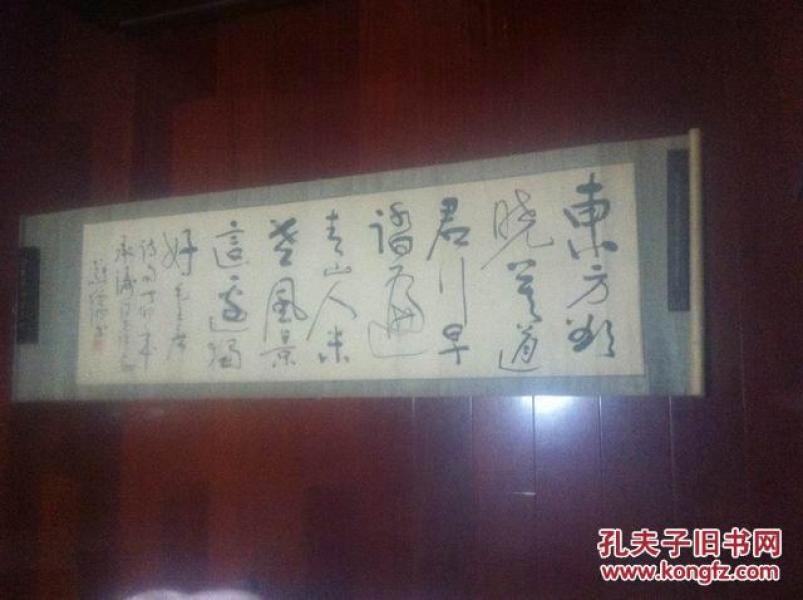 東方欲
曉莫道
君行早
踏遍
青山人未
老風景
這邊獨
好 毛主席
詩句丁卯年
書
孔夫子旧书网
www.kongfz.com